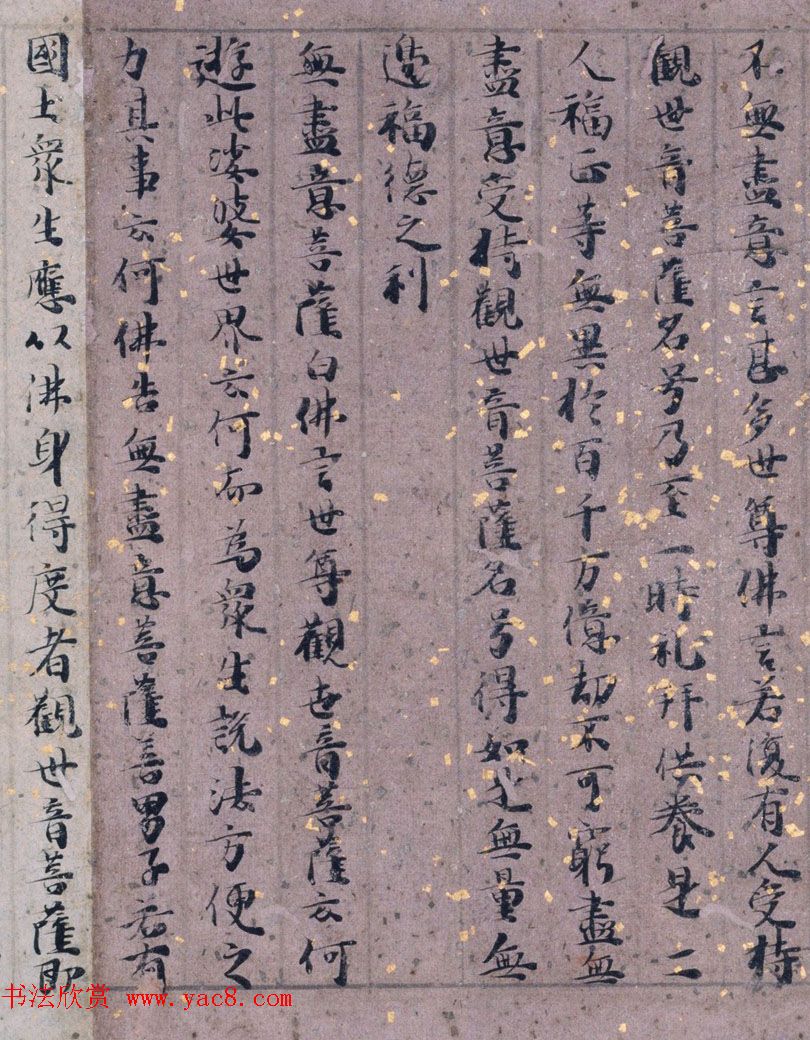 不無盡意言甚多世尊佛言若復有人受持
觀世音菩薩名号乃至一時礼拜供養是二
人福正等無異於百千万億劫不可窮盡無
盡意受持觀世音菩薩名号得如是無量無
邊福德之利
無盡意菩薩白佛言世尊觀世音菩薩云何
遊此娑婆世界云何而為衆生說法方便之
力其事云何佛告無盡意菩薩善男子若有
國土衆生應以佛身得度者觀世音菩薩即
书法欣赏 www.yac8.com